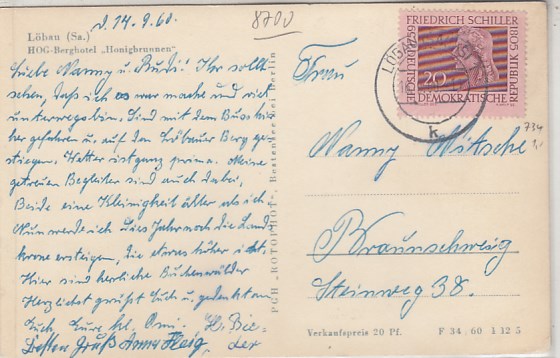 d. 14. 9. 60.
8700
Löbau (Sa.)
HOG-Berghotel „Honigbrunnen"
Liebe Nanny u. Rudi! Ihr sollt
sehen, daß ich es war mache und viel
unterwegs bin. Sind mit dem Bus hier-
her gefahren u. auf den Löbauer Berg ge-
stiegen. Wetter ist ganz prima. Meine
getreuen Begleiter sind auch dabei,
Beide eine Kleinigkeit älter als ich.
Nun werde ich dies Jahr noch die Lands-
krone ersteigen, die etwas höher ist.
Hier sind herrliche Buchenwälder
Herzlichst grüßt Euch u. gedenkt an
Euch, Eure
Besten Gruß Anna
PGH „ROTOPHOT", Bestensee bei Berlin
FRIEDRICH SCHILLER
1759 1959 1805
20
DEUTSCHE DEMOKRATISCHE REPUBLIK
LÖBAU
k
734
Frau
Nanny Nitsche
Braunschweig
Steinweg 38.
Verkaufspreis 20 Pf.
F 34 60 I 12 5